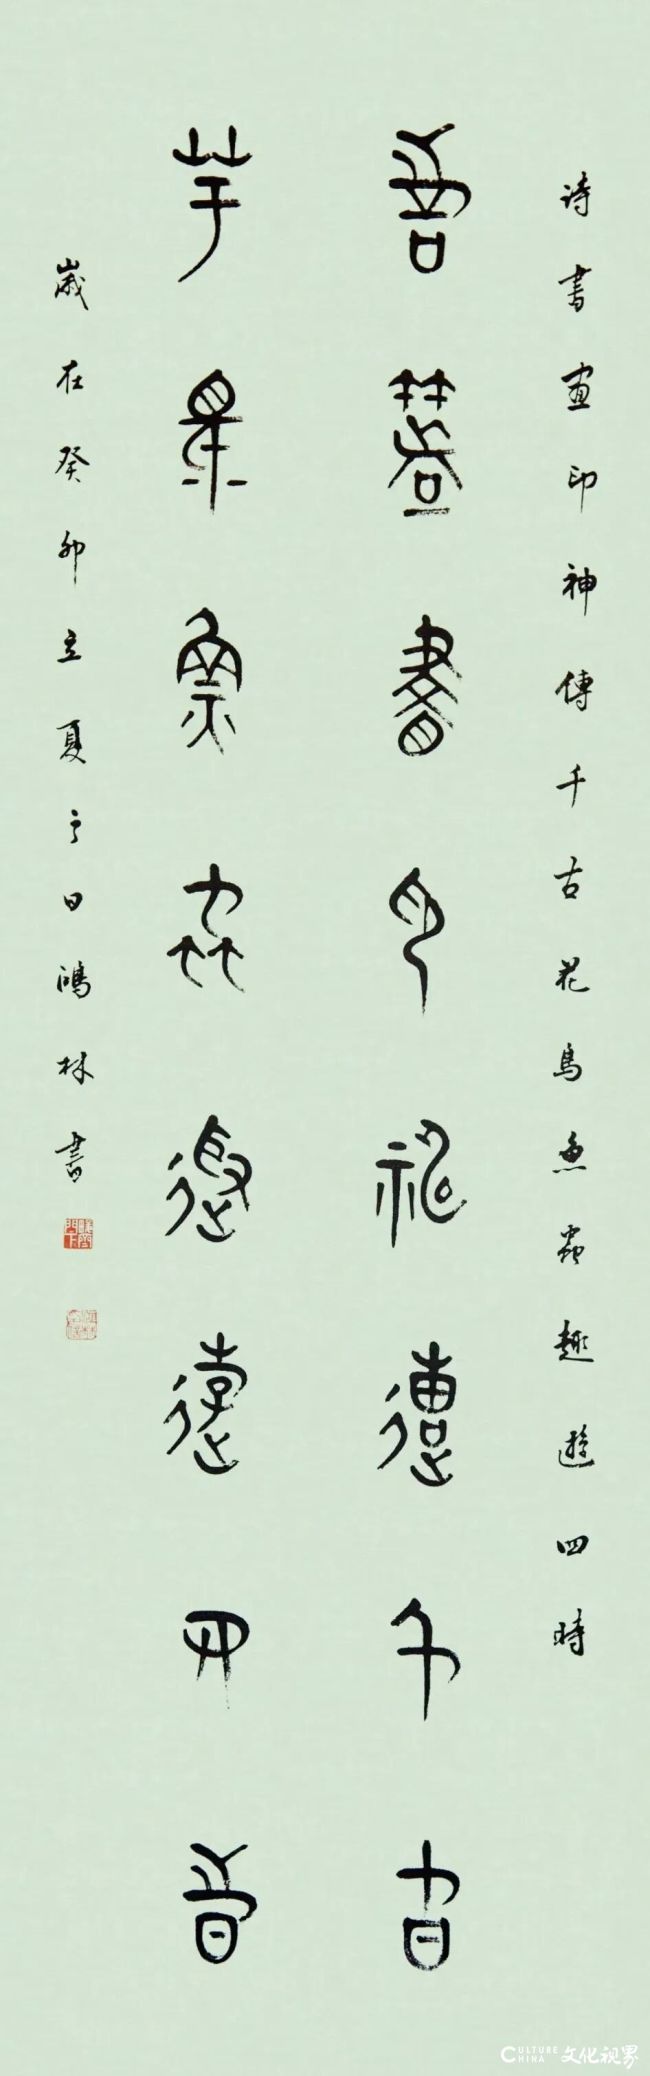 诗書畫印神傳千古花鳥魚蟲趣遊四時
詩書畫印神傳千古
花鳥魚蟲趣遊四時
歲在癸卯立夏之日鴻林書
CULTURE
CHINA 文化视界